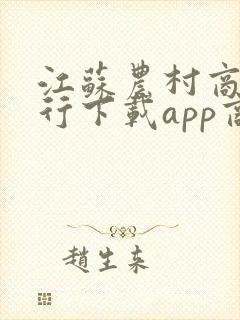 江蘇農村商
行下載app商
趙生来